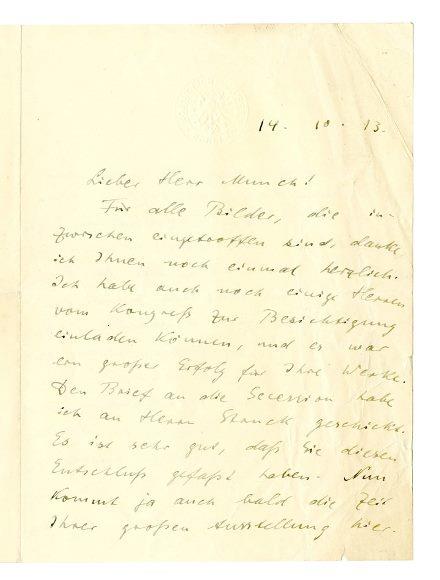 14. 10. 13.
Lieber Herr Munch!
Für alle Bilder, die in-
zwischen eingetroffen sind, danke
ich Ihnen noch einmal herzlich.
Ich habe auch noch einige Herren
vom Kongreß zur Besichtigung
einladen können, und es war
ein großer Erfolg für Ihre Werke.
Den Brief an die Secession habe
ich an Herrn geschickt.
Es ist sehr gut, daß Sie diesen
Entschluß gefaßt haben. Nun
kommt ja auch bald die Zeit
Ihrer großen Ausstellung hier.